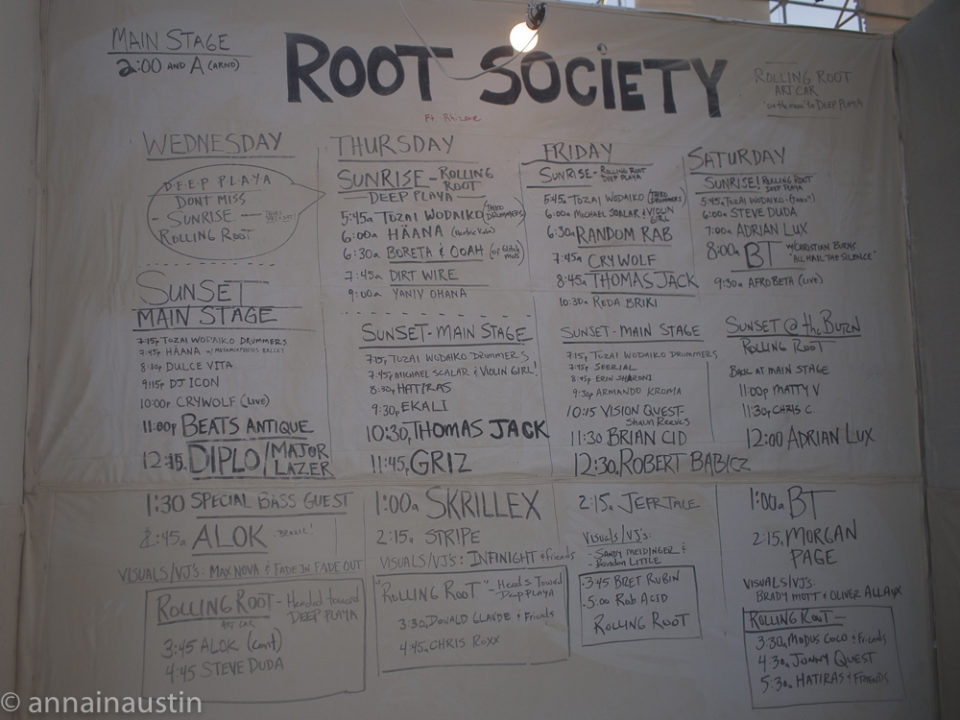 MAIN STAGE
2:00 AND A (ARNO)
ROOT SOCIETY
Ft. Rhizome
ROLLING ROOT
ART CAR
to DEEP PLAYA
WEDNESDAY
DEEP PLAYA
DONT MISS
- SUNRISE -
ROLLING ROOT
SUNSET
MAIN STAGE
7:15p TOZAI WODAIKO DRUMMERS
7:45p HÄANA
8:30p DULCE VITA
9:15p DJ ICON
10:00p CRYWOLF (LIVE)
11:00p BEATS ANTIQUE
12:15. DIPLO/MAJOR LAZER
1:30 SPECIAL BASS GUEST
2:45a ALOK - BRAZIL!
VISUALS/VJ'S: MAX NOVA & FADE IN FADE OUT
ROLLING ROOT - Headed toward
ART CAR DEEP PLAYA
3:45 ALOK (cont)
4:45 STEVE DUDA
THURSDAY
SUNRISE - ROLLING ROOT
- DEEP PLAYA -
5:45a TOZAI WODAIKO (TAIKO DRUMMERS)
6:00a HÄANA
6:30a BORETA & OOAH (of Glitch Mob)
7:45a DIRT WIRE
9:00a YANIV OHANA
SUNSET - MAIN STAGE
7:15p TOZAI WODAIKO DRUMMERS
7:45p MICHAEL SCALAR & VIOLIN GIRL!
8:30p HATIRAS
9:30p EKALI
10:30p THOMAS JACK
11:45p GRIZ
1:00a SKRILLEX
2:15a STRIPE
VISUALS/VJ'S: INFINIGHT & Friends
"ROLLING ROOT" - Heads Toward
DEEP PLAYA
3:30a DONALD GLAUDE & Friends
4:45a CHRIS ROXX
FRIDAY
SUNRISE - ROLLING ROOT
DEEP PLAYA
5:45a TOZAI WODAIKO (TAIKO DRUMMERS)
6:00a MICHAEL SCALAR & VIOLIN GIRL
6:30a RANDOM RAB
7:45a CRYWOLF
8:45a THOMAS JACK
10:30a REDA BRIKI
SUNSET - MAIN STAGE
7:15p TOZAI WODAIKO DRUMMERS
7:45p
8:45p ERIN
9:30p ARMANDO KROMIA
10:15 VISION QUEST -
Shaun Reeves
11:30 BRIAN CID
12:30a ROBERT BABICZ
2:15a JEFR TALE
VISUALS/VJ'S:
- SANDY MEIDINGER &
- Brandon LITTLE
3:45 BRET RUBIN
5:00 Rob ACID
ROLLING ROOT
SATURDAY
SUNRISE! ROLLING ROOT
DEEP PLAYA
5:45a TOZAI WODAIKO
6:00a STEVE DUDA
7:00a ADRIAN LUX
8:00a BT W/CHRISTIAN BURNS
"ALL HAIL THE SILENCE"
9:30a AFROBETA (LIVE)
SUNSET @ the BURN
ROLLING ROOT
BACK AT MAIN STAGE
11:00p MATTY V
11:30p CHRIS C.
12:00 ADRIAN LUX
1:00a BT
2:15a MORGAN PAGE
VISUALS/VJ'S:
BRADY MOTT & OLIVER ALLAUX
ROLLING ROOT -
3:30a MODUS COCO & Friends
4:30a JONNY QUEST
5:30a HATIRAS & FRIENDS
© annainaustin